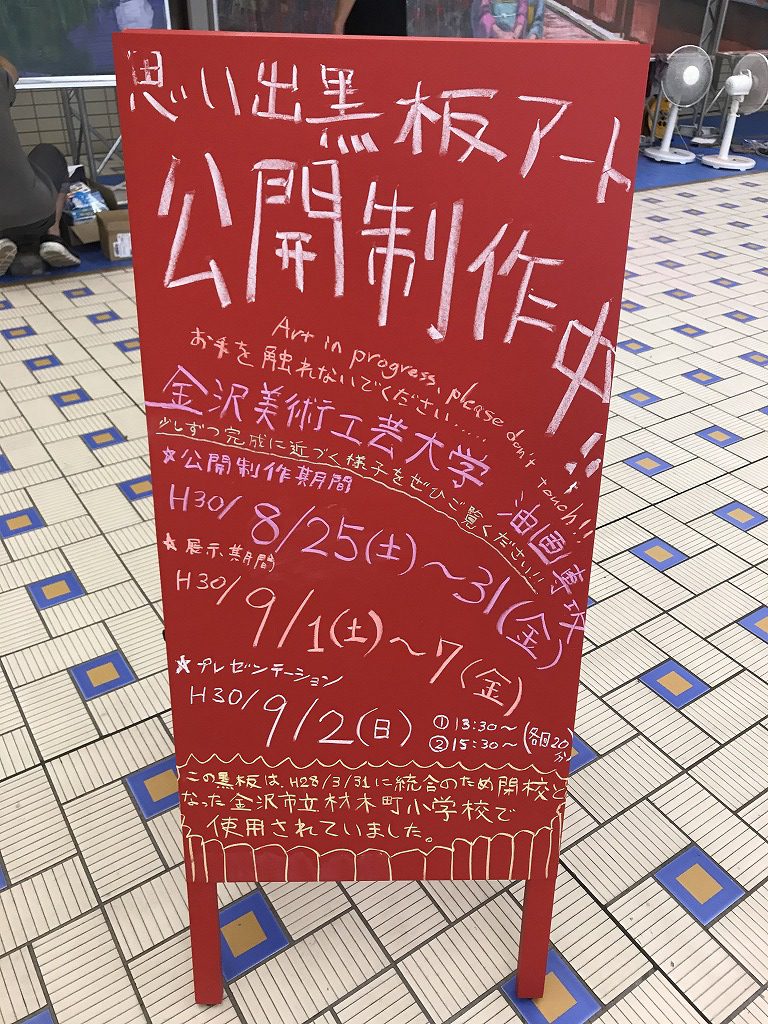 思い出黒板アート
公開制作中!!
Art in progress, please don't touch!!
お手を触れないでください……
金沢美術工芸大学 油画専攻
少しずつ完成に近づく様子をぜひご覧ください!!
★公開制作期間
H30/8/25(土)~31(金)
★展示期間
H30/9/1(土)~7(金)
★プレゼンテーション
H30/9/2(日) ①13:30~ ②15:30~ (各回20分)
この黒板は、H28/3/31に統合のため閉校と
なった金沢市立材木町小学校で
使用されていました。